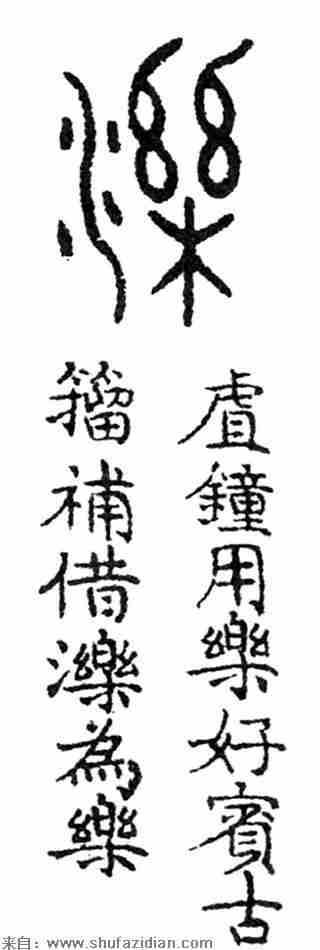 濼
虘鐘用樂好賓古
籀補借濼為樂
来自：www.shufazidian.com